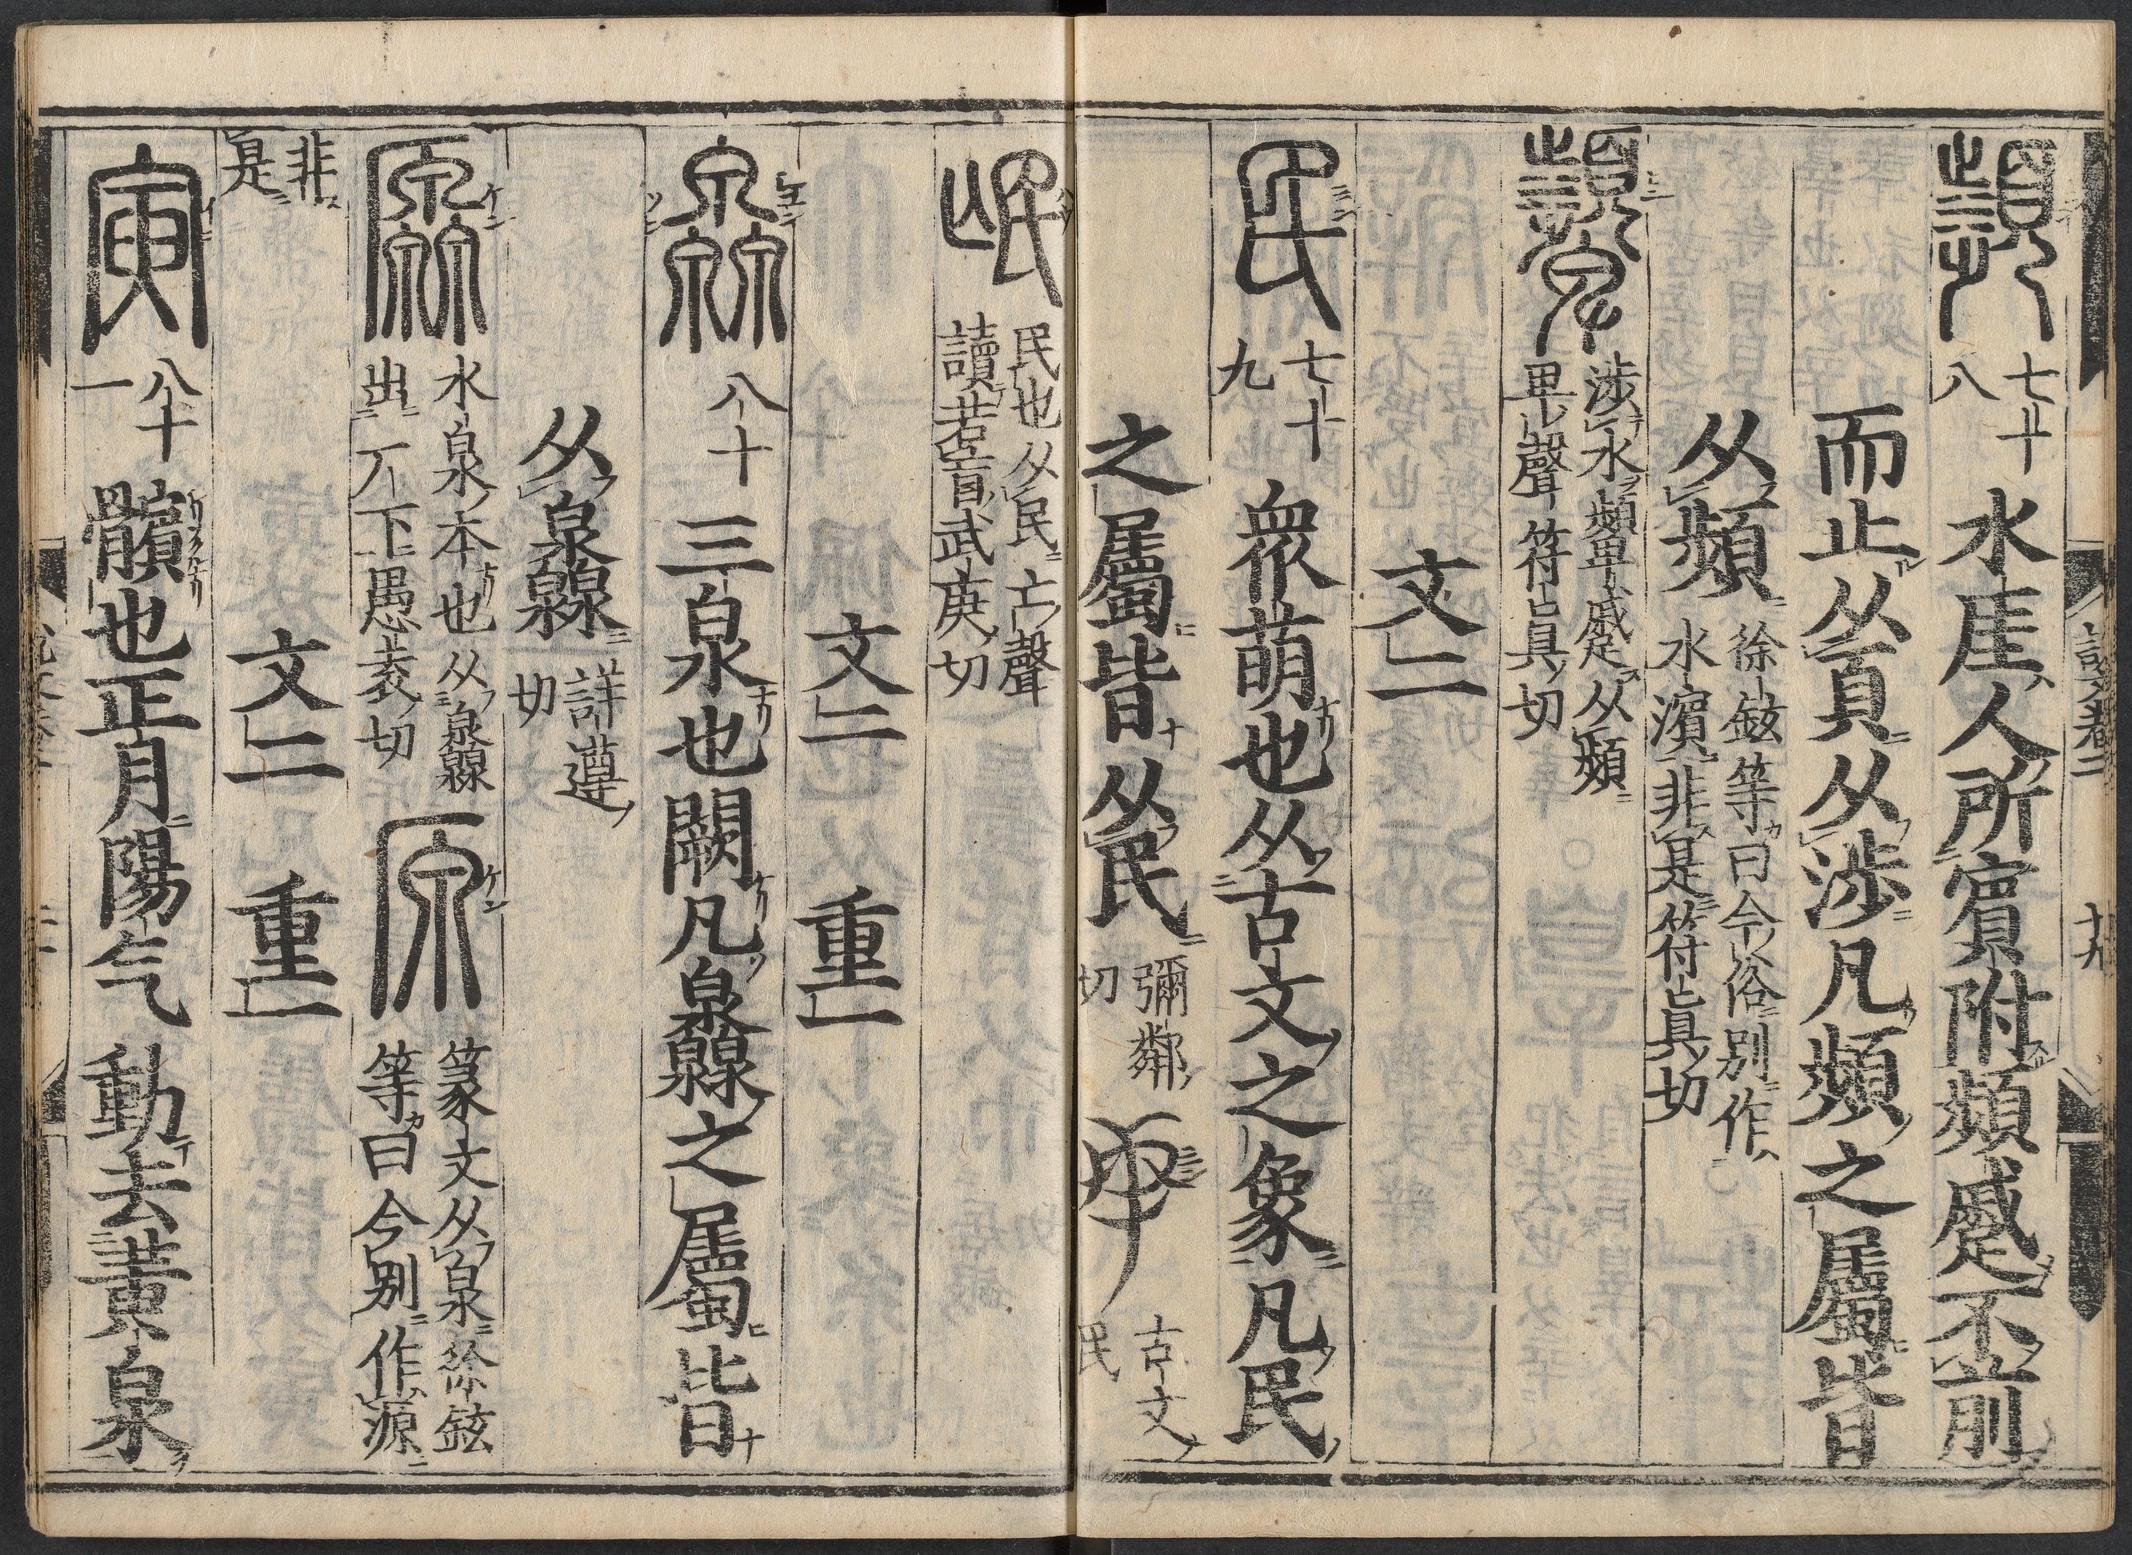 瀕 七十八 水厓人所賓附頻蹙不前
而止从頁从涉凡頻之屬皆
从頻 徐鉉等曰今俗別作水濱非是符眞切
顰 涉水頻卑蹙从頻畢聲符眞切
文二
民 七十九 衆萌也从古文之象凡民
之屬皆从民 彌鄰切 古文民
氓 民也从民亡聲讀若盲武庚切
文二 重一
灥 八十 三泉也闕凡灥之屬皆
从灥 詳遵切
厵 水泉本也从灥出厂下愚袁切 原 篆文从泉徐鉉等曰今別作源
非是
文二 重一
寅 八十一 髕也正月陽气動去黄泉
說文卷二
十九